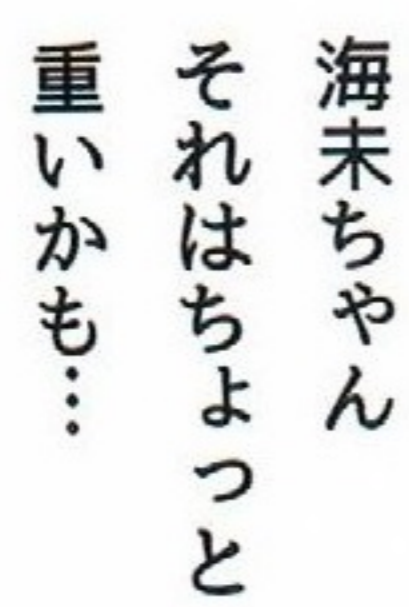 海未ちゃん
それはちょっと
重いかも…